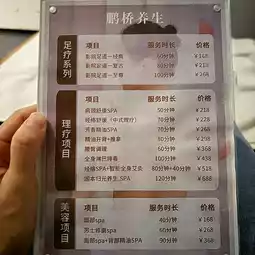 鹏桥养生
足疗系列
项目 服务时长 价格
影院足道—经典 60分钟 ¥168
影院足道—复古 80分钟 ¥218
影院足道—至尊 100分钟 ¥268
理疗项目
项目 服务时长 价格
肩颈舒缓SPA 50分钟 ¥218
经络舒缓(中式理疗) 70分钟 ¥228
芳香精油SPA 70分钟 ¥268
精油开背+推拿 90分钟 ¥298
腰肾调理 60分钟 ¥268
全身淋巴排毒 100分钟 ¥468
经络SPA+智能全身艾灸 80分钟+40分钟 ¥518
固本归元养生SPA 120分钟 ¥688
美容项目
项目 服务时长 价格
面部spa 40分钟 ¥168
90分钟 ¥268
+背部精油SPA 90分钟 ¥368